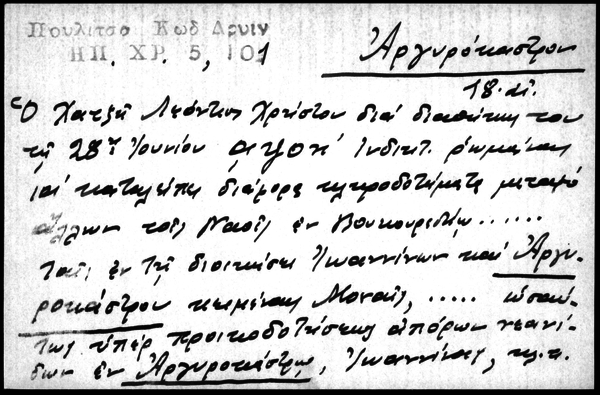 Πουλίτσα Κωδ Δρυϊν
ΗΠ. ΧΡ. 5, 101
Ἀργυρόκαστρον
18. αἰ.
Ὁ Χατζῆ Λεόντιος Χρήστου διά διαθήκης του
τῆς 28ης Ἰουνίου αψοκ' Ἰνδικτ.
καί καταλείπει διάφορα κληροδοτήματα μεταξύ
ἄλλων τοῖς Ναοῖς ἐν Βουκουρεστίῳ ......
ταῖς ἐν τῇ διοικήσει Ἰωαννίνων καί Ἀργυ-
ροκάστρου κειμέναις Μοναῖς, ..... ὡσαύ-
τως ὑπέρ προικοδοτήσεως ἀπόρων νεανί-
δων ἐν Ἀργυροκάστρῳ, Ἰωαννίνοις, κλπ.